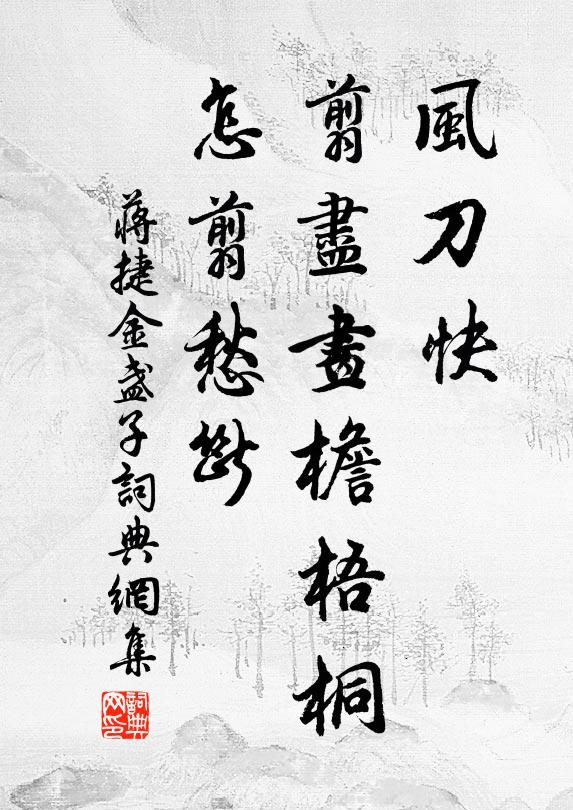 風刀快
翦盡畫檐梧桐
怎翦愁斷
蔣捷金盞子詞典網集
詞典网印